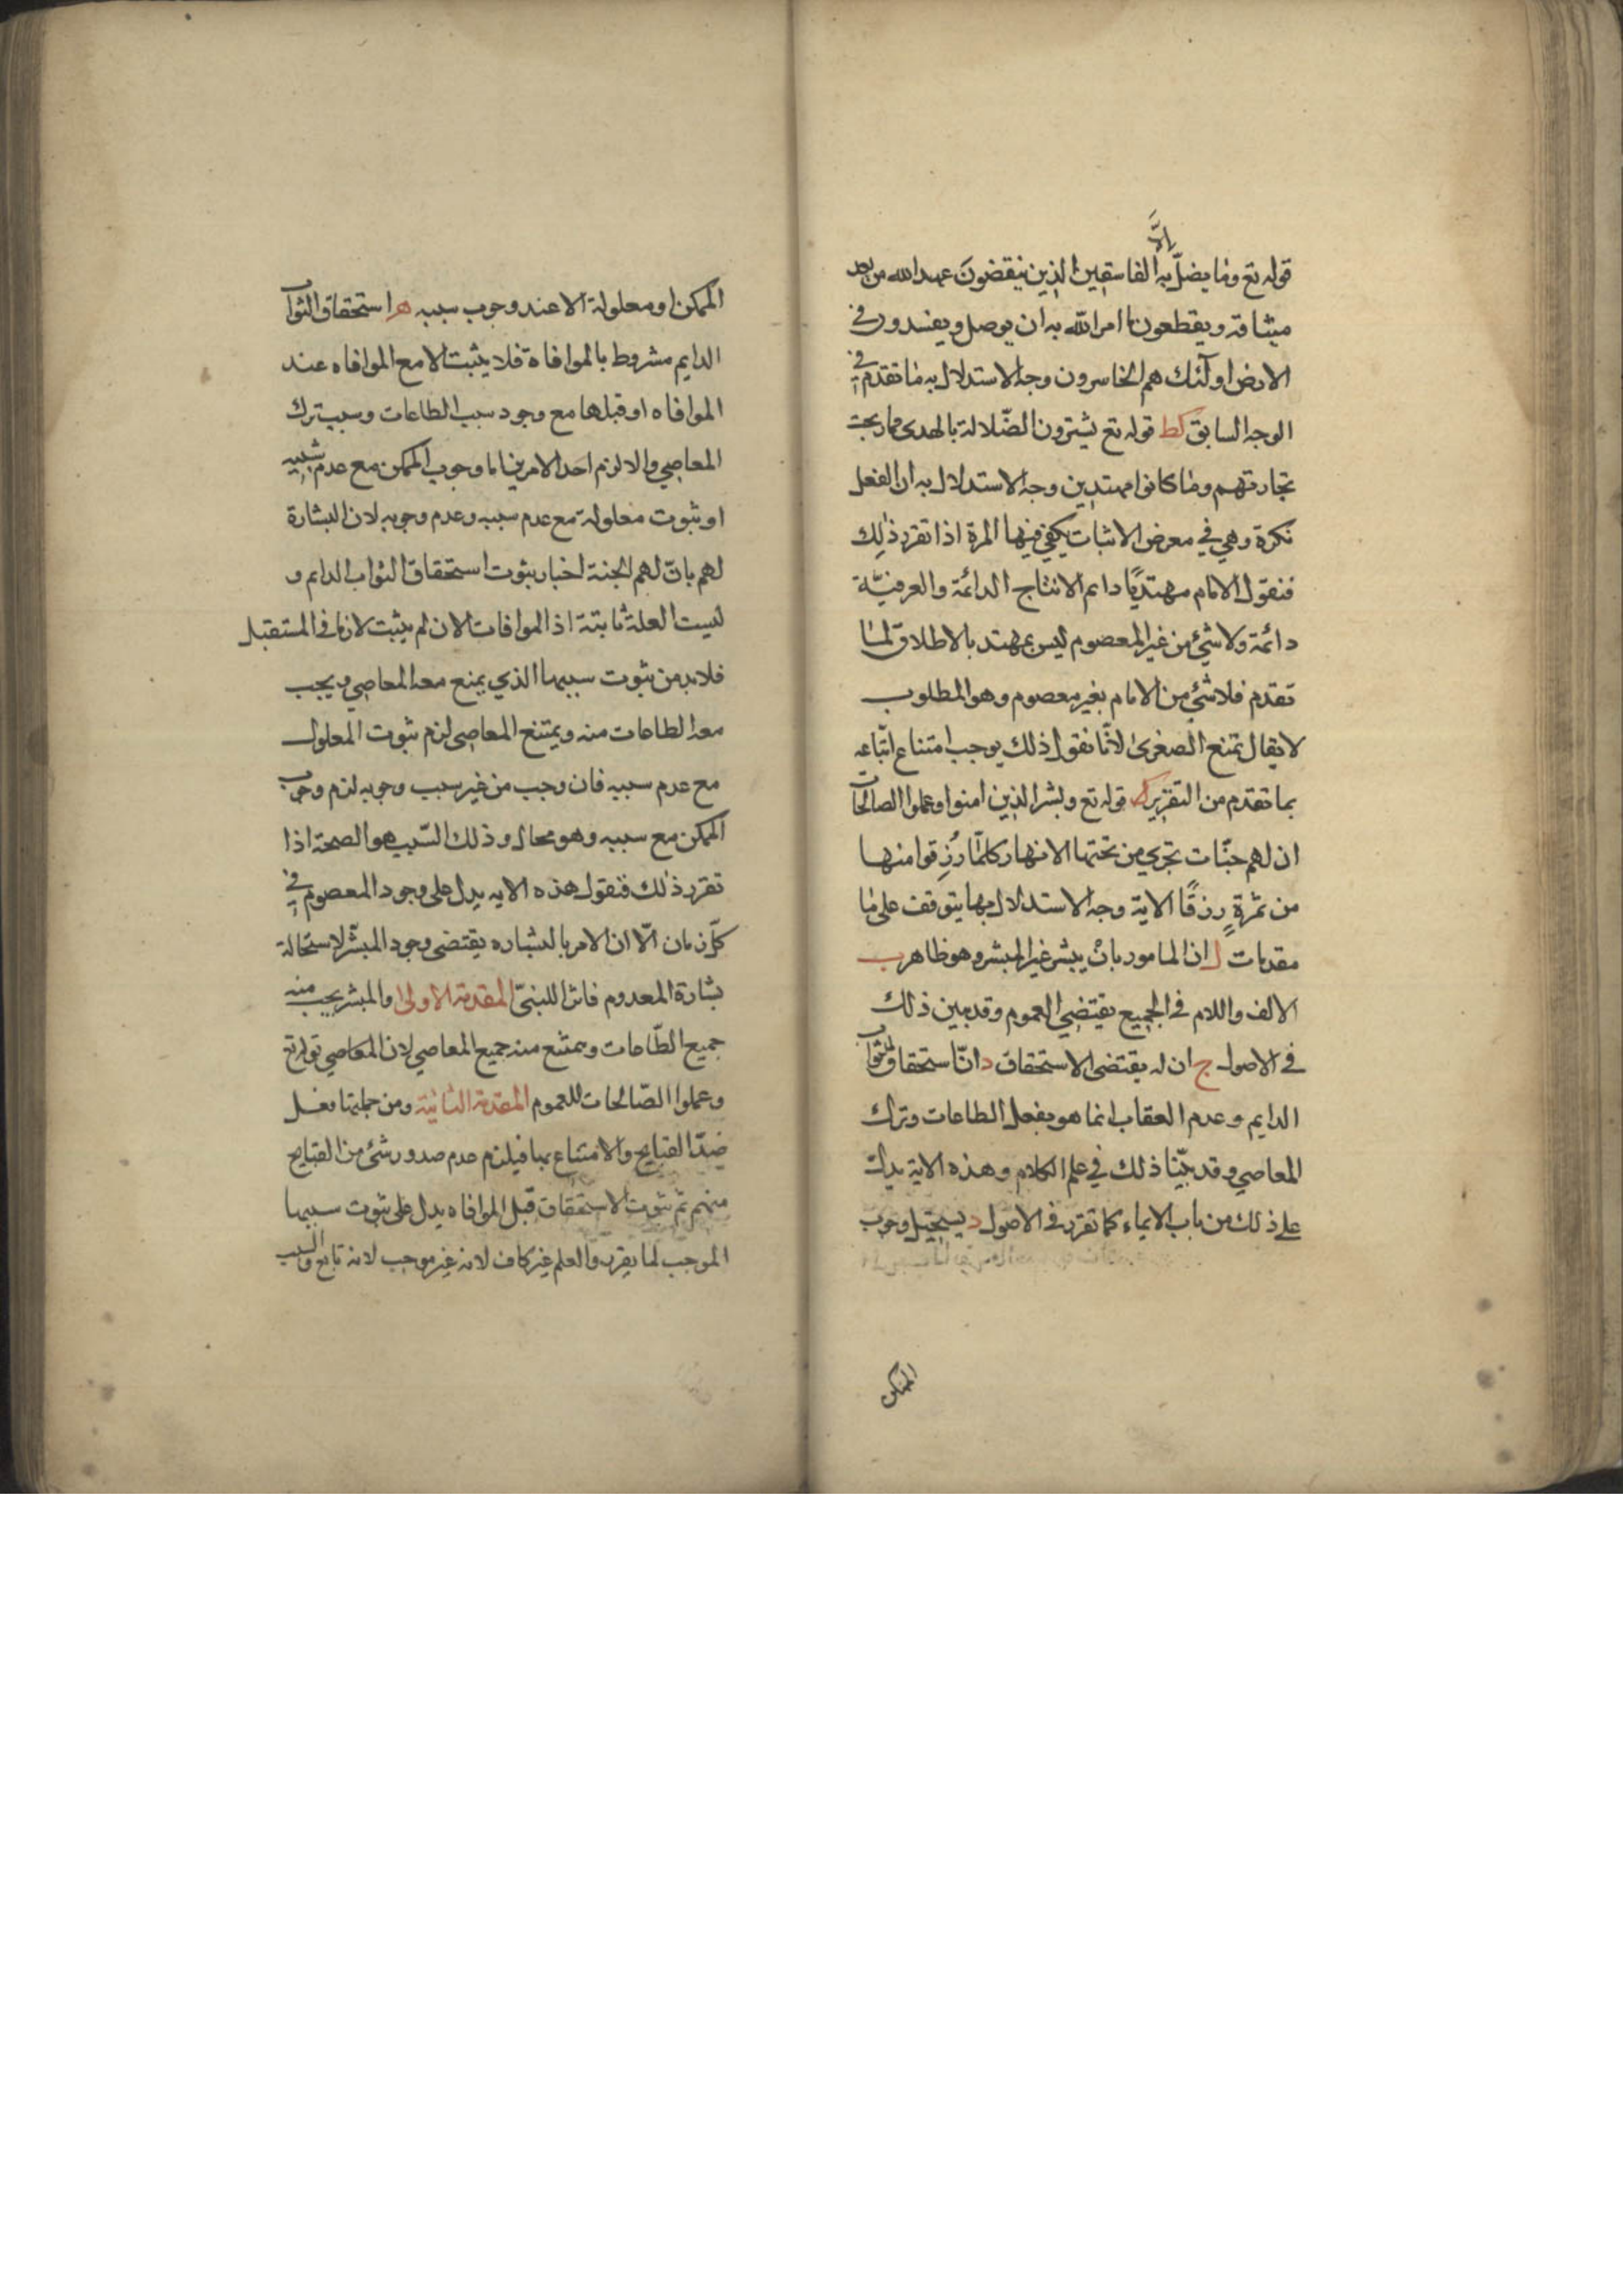 الّا
قوله تع وما يضلّ به الفاسقين الذين ينقضون عهد الله من بعد
ميثاقه ويقطعون ما امر الله به ان يوصل ويفسدون في
الارض اولئك هم الخاسرون وجه الاستدلال به ما تقدم في
الوجه السابق كط قوله تع يشترون الضّلالة بالهدى فما ربحت
تجارتهم وما كانوا مهتدين وجه الاستدلال به ان الفعل
نكرة وهي في معرض الاثبات يكفي فيها المرة اذا تقرر ذلك
فنقول الامام مهتديًا دايم الانتاج الدائمة والعرفيّة
دائمة ولا شئ من غير المعصوم ليس بمهتد بالاطلاق لما
تقدم فلا شئ من الامام بغير معصوم وهو المطلوب
لا يقال تمنع الصغرى لانّا نقول ذلك يوجب امتناع اتّباعه
بما تقدم من التقرير ل قوله تع وبشر الذين امنوا وعملوا الصالحات
ان لهم جنّات تجري من تحتها الانهار كلمّا رُزِقوا منها
من ثمرةٍ رزقًا الاية وجه الاستدلال بها يتوقف على ما
مقدمات ا ان المامور بانْ يبشر غير المبشر وهو ظاهر ب
الالف واللام في الجميع يقتضي العموم وقد بين ذلك
في الاصول ج ان له يقتضى الاستحقاق د انّ استحقاق الثواب
الدايم وعدم العقاب انما هو بفعل الطاعات وترك
المعاصي وقد بيّنا ذلك في علم الكلام وهذه الاية يدل
على ذلك من باب الايماء كما تقرر في الاصول د يستحيل وجوب
الممكن
الممكن او معلولة الا عند وجوب سببه ه استحقاق الثواب
الدايم مشروط بالموافاة فلا يثبت الا مع الموافاه عند
الموافاه او قبلها مع وجود سبب الطاعات وسبب ترك
المعاصي والا لزم احد الامرين اما وجوب الممكن مع عدم سببه
او ثبوت معلولة مع عدم سببه وعدم وجوبه لان البشارة
لهم بانّ لهم الجنة اخبار بثبوت استحقاق الثواب الدايم و
ليست العلة ثابتة اذ الموافات الان لم يثبت لانها في المستقبل
فلابد من ثبوت سببها الذي يمنع معه المعاصي ويجب
معه الطاعات منه ويمتنع المعاصي لزم ثبوت المعلول
مع عدم سببه فان وجب من غير سبب وجوبه لزم وجوب
الممكن مع سببه وهو محال وذلك السّبب هو الصمة اذا
تقرر ذلك فنقول هذه الايه يدل على وجود المعصوم في
كلّ زمان الّا ان الامر بالبشاره يقتضى وجود المبشّر لاستحالة
بشارة المعدوم فاش للنبيّ المقدمة الاولى والمبشر يجب منه
جميع الطّاعات ويمتنع منه جميع المعاصي لان المعاصي قوله تع
وعملوا الصّالحات للعموم المقدمة الثانية ومن جملتها فعل
ضدّ القبايح والامتناع بها فيلزم عدم صدور شئ من القبايح
منهم ثم ثبوت الاستحقاق قبل الموافاه يدل على ثبوت سببها
الموجب لما يقرر والعلم غير كاف لانه غير موجب لانه تابع والسبب